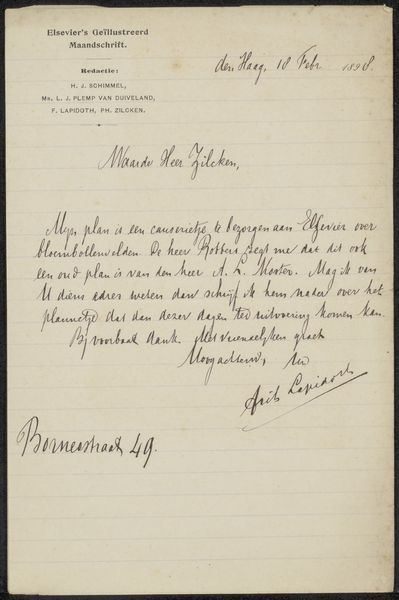 Elsevier's Geïllustreerd
Maandschrift.
Redactie:
H. J. SCHIMMEL,
Mr. L. J. PLEMP VAN DUIVELAND,
F. LAPIDOTH, PH. ZILCKEN.
den Haag, 18 Febr. 1898.
Waarde Heer Zilcken,
Mijn plan is een causerietje te bezorgen aan Elsevier over
bloembollenvelden. De heer Robbers zegt me dat dit ook
een oud plan is van den heer A. L. Koster. Mag ik van
U diens adres weten dan schrijf ik hem nader over het
plannetje dat dan dezer dagen ter uitvoering komen kan.
Bij voorbaat dank. Met vriendelijken groet
Hoogachtend, Uw
Frits Lapidoth
Borneostraat 49.